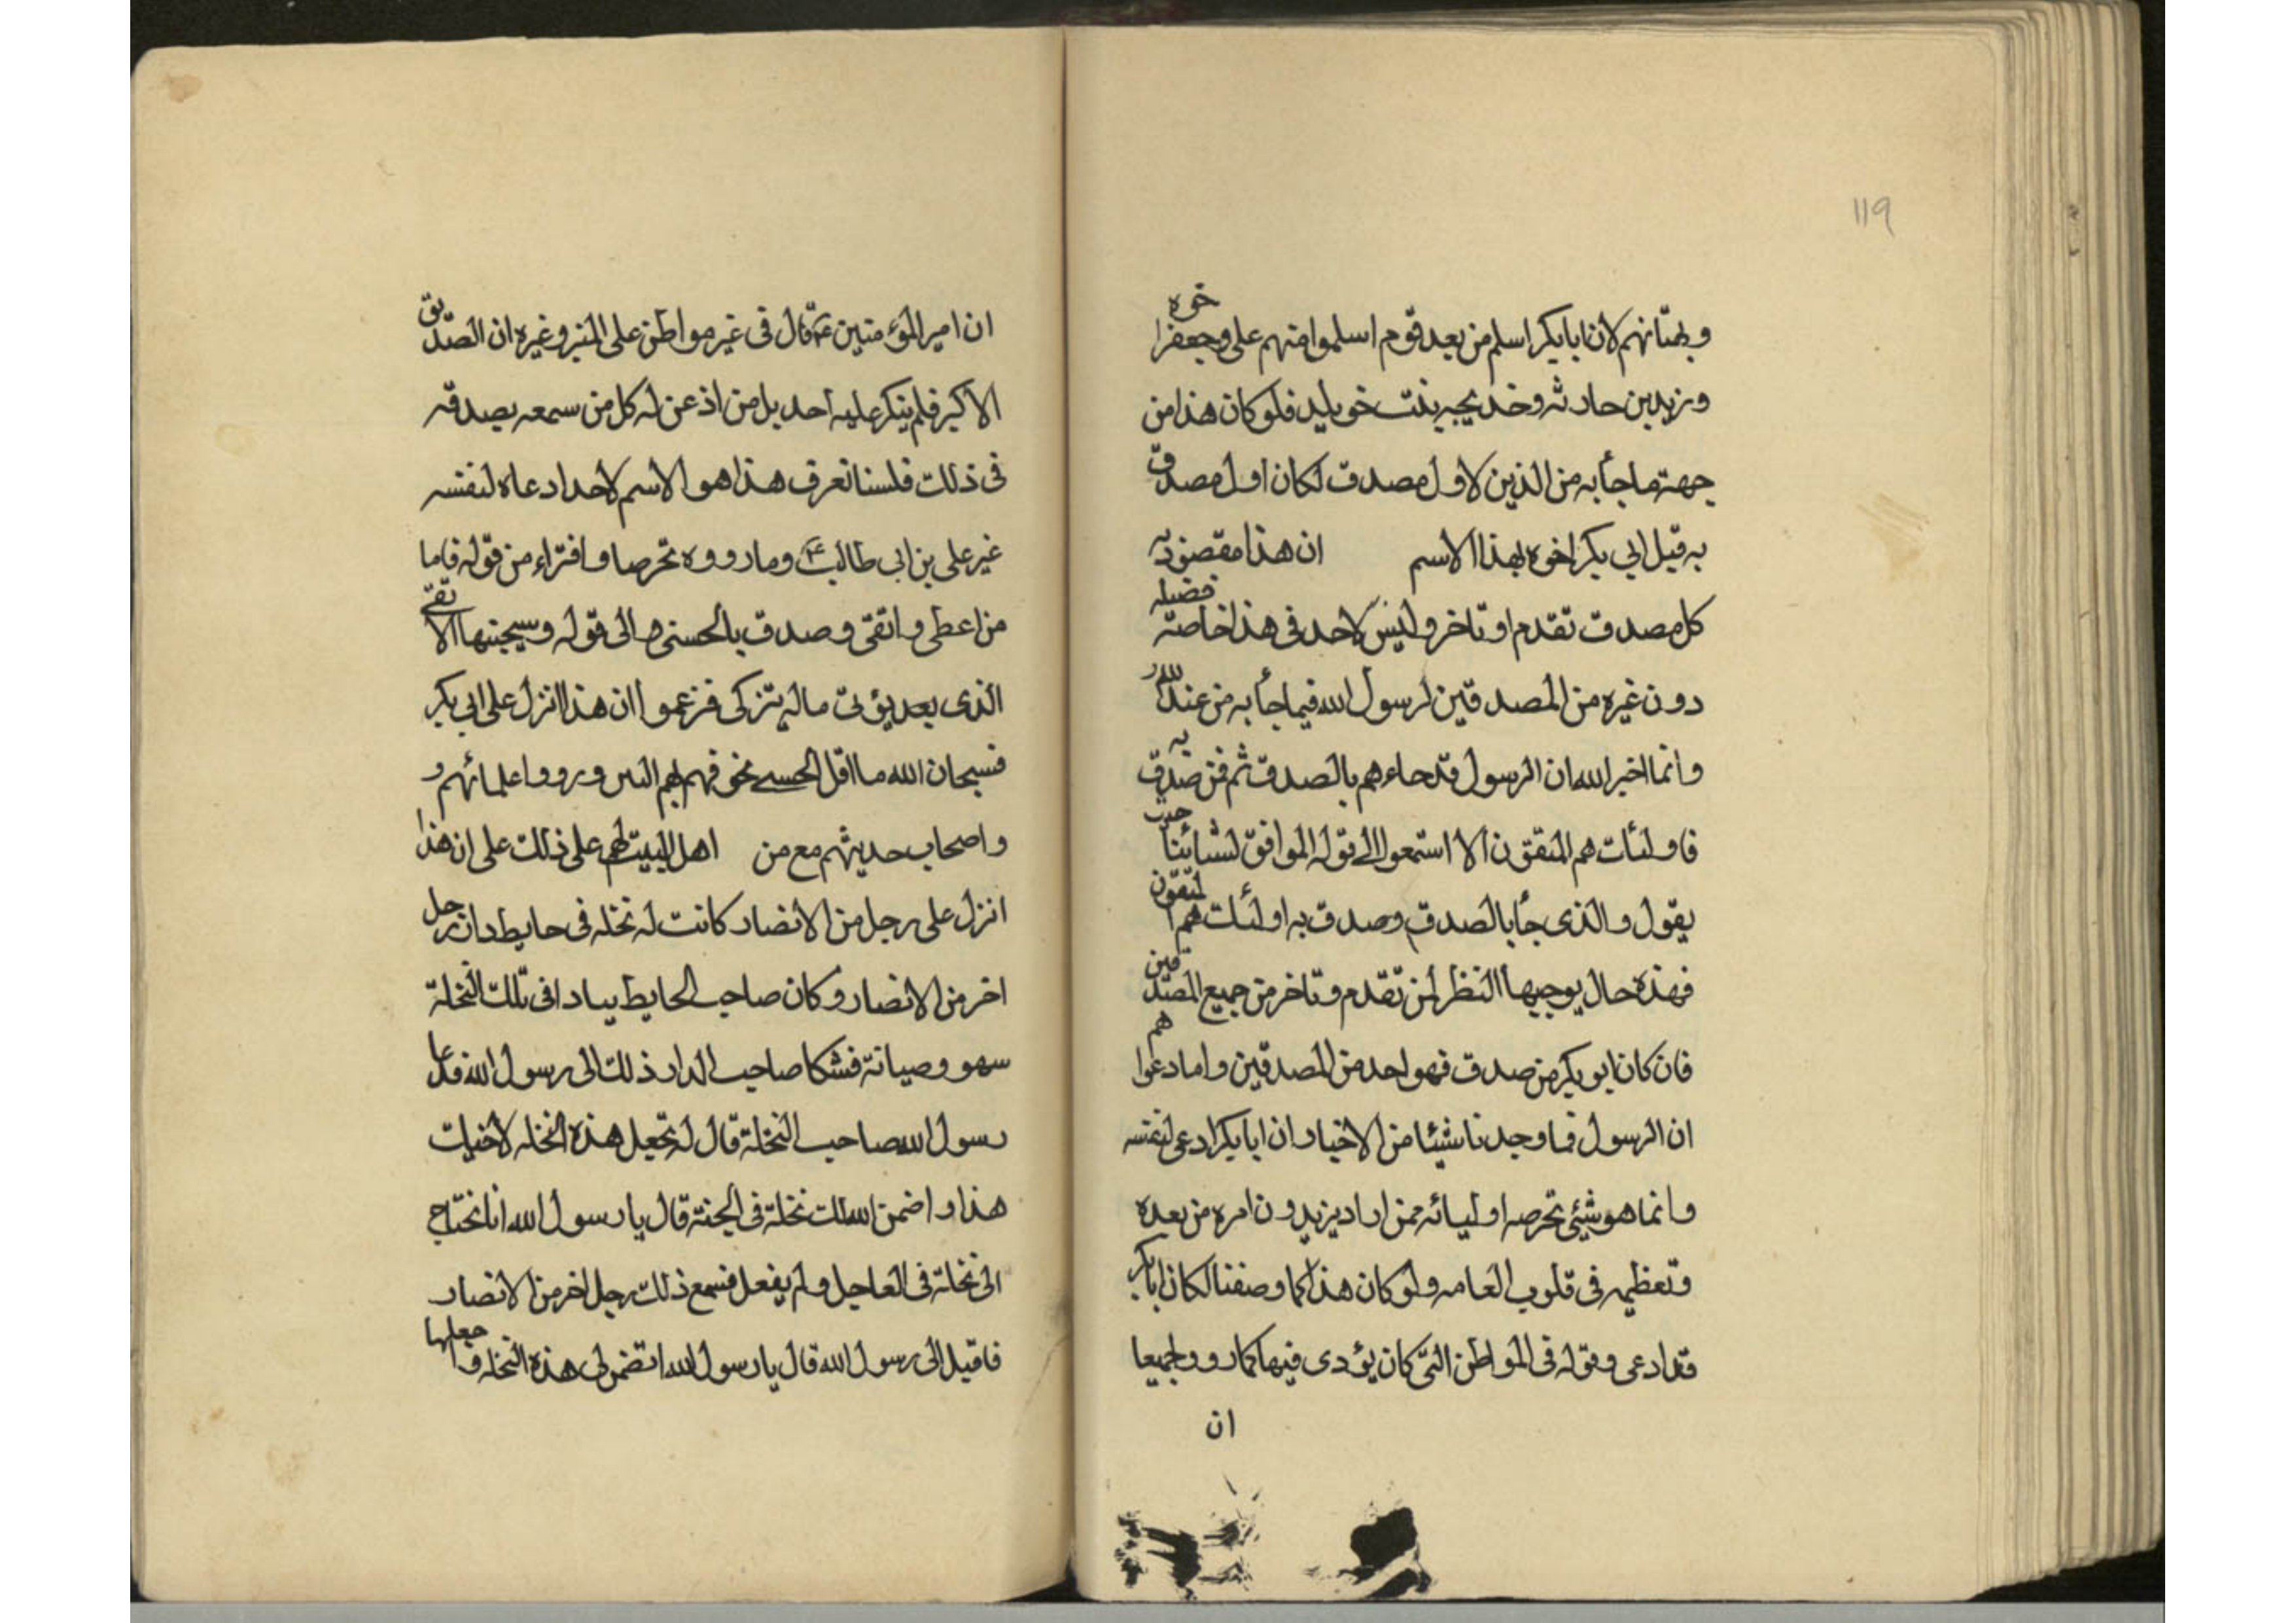 ١١٩
وبهتانهم لان ابابكر اسلم من بعد قوم اسلموا منهم على وجعفر اخوه
وزيد بن حارثه وخديجه بنت خويلد فلو كان هذا من
جهة ما جأ به من الذين لاول مصدق لكان اول مصدق
به قبل ابي بكر اخوه بهذا الاسم ان هذا مقصود به
كل مصدق تقدم او تاخر وليس لاحد فى هذا خاصة فضيله
دون غيره من المصدقين لرسول الله فيما جأ به من عند الله
وانما اخبر الله ان الرسول قد جاءهم بالصدق ثم فمن صدق به
فاولئك هم المتقون الا استمعوا الى قوله الموافق لشأننا حيث
يقول والذى جأ بالصدق وصدق به اولئك هم المتقون
فهذه حال يوجبها النظر لمن تقدم وتاخر من جميع المصدقين
فان كان ابو بكر من صدق فهو احد من المصدقين واما دعواهم
ان الرسول فما وجدنا شيئا من الاخبار ان ابابكر ادعى لنفسه
وانما هو شيئ تخرصه اوليائه ممن اراد يزيدون امره من بعده
وتعظيمه فى قلوب العامه ولو كان هذا كما وصفنا لكان ابابكر
قد ادعى وقوله فى المواطن التى كان يؤدى فيها كما رووا جميعا
ان
ان امير المؤمنين ع قال فى غير مواطن على المنبر وغيره ان الصديق
الاكبر فلم ينكر عليه احد بل من اذعن له كل من سمعه بصدقه
فى ذلك فلسنا نعرف هذا هو الاسم لاحد ادعاه لنفسه
غير على بن ابى طالب ع وما رووه تخرصا وافتراء من قوله فاما
من اعطى واتقى وصدق بالحسنى الى قوله وسيجنبها الاتقى
الذى بعد يؤتى ماله يتزكى فزعموا ان هذا انزل على ابى بكر
فسبحان الله ما اقل ورووا علمائهم و
واصحاب حديثهم مع من اهل البيت على ذلك على ان هذا
انزل على رجل من الانصار كانت له نخله فى حايط دار رجل
اخر من الانصار وكان صاحب الحايط يباد فى تلك النخلة
سهو وصيانة فشكا صاحب الدار ذلك الى رسول الله فدعا
رسول الله صاحب النخلة قال له تجعل هذه النخله لاخيك
هذا واضمن الله لك نخلة فى الجنة قال يا رسول الله انا نحتاج
الى نخلة فى العاجل ولم يفعل فسمع ذلك رجل اخر من الانصار
فاقبل الى رسول الله قال يا رسول الله اتضمن لى هذه النخله واجعلها